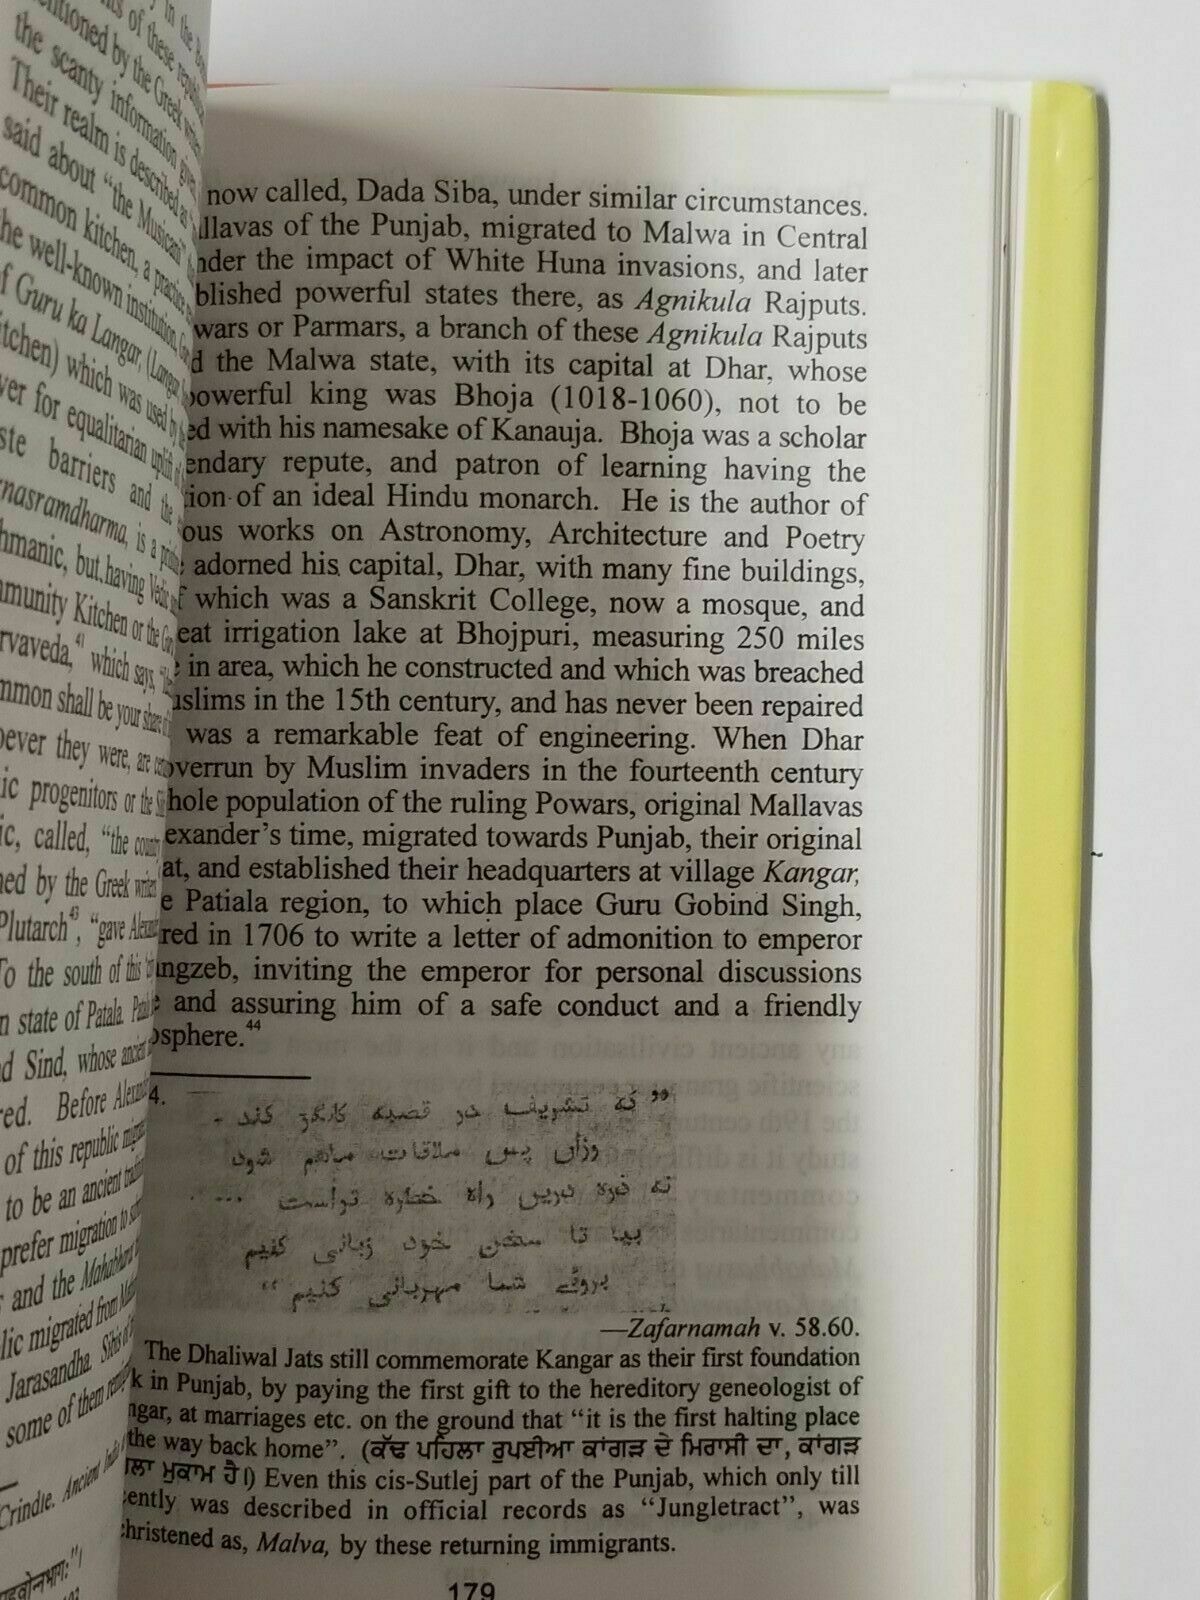 in the
of these republics
mentioned by the Greek writers
the scanty information given
Their realm is described as
said about "the Musicani"
common kitchen, a practice
the well-known institution,
of Guru ka Langar, (Langar
kitchen) which was used by the
for equalitarian uplift of
barriers and the
is a
but, having Vedic
Community Kitchen or the Guru
which says,
common shall be your share of
they were, are
progenitors or the
called, "the country
by the Greek writers
Plutarch⁴³, "gave Alexander
To the south of this
state of Patala.
Sind, whose ancient
Before Alexander
of this republic
to be an ancient
prefer migration to
and the Mahabharata
migrated from
Jarasandha. Sibis of
some of them
Crindle. Ancient India
now called, Dada Siba, under similar circumstances.
of the Punjab, migrated to Malwa in Central
the impact of White Huna invasions, and later
powerful states there, as Agnikula Rajputs.
or Parmars, a branch of these Agnikula Rajputs
the Malwa state, with its capital at Dhar, whose
powerful king was Bhoja (1018-1060), not to be
with his namesake of Kanauja. Bhoja was a scholar
repute, and patron of learning having the
of an ideal Hindu monarch. He is the author of
works on Astronomy, Architecture and Poetry
adorned his capital, Dhar, with many fine buildings,
which was a Sanskrit College, now a mosque, and
irrigation lake at Bhojpuri, measuring 250 miles
in area, which he constructed and which was breached
in the 15th century, and has never been repaired
was a remarkable feat of engineering. When Dhar
overrun by Muslim invaders in the fourteenth century
population of the ruling Powars, original Mallavas
time, migrated towards Punjab, their original
and established their headquarters at village Kangar,
Patiala region, to which place Guru Gobind Singh,
in 1706 to write a letter of admonition to emperor
inviting the emperor for personal discussions
and assuring him of a safe conduct and a friendly
44
4.
" که تشریف در قصبه کانگڑ کند -
وزاں پس ملاقات باہم شود
نہ ذرہ دریں راہ خطرہ تراست ...
بیا تا سخن خود زبانی کنیم
بروئے شما مہربانی کنیم "
—Zafarnamah v. 58.60.
The Dhaliwal Jats still commemorate Kangar as their first foundation
in Punjab, by paying the first gift to the hereditory geneologist of
at marriages etc. on the ground that "it is the first halting place
the way back home". (ਕੱਢ ਪਹਿਲਾ ਰੁਪਈਆ ਕਾਂਗੜ ਦੇ ਮਿਰਾਸੀ ਦਾ, ਕਾਂਗੜ
ਮੁਕਾਮ ਹੈ।) Even this cis-Sutlej part of the Punjab, which only till
was described in official records as "Jungletract", was
christened as, Malva, by these returning immigrants.
179